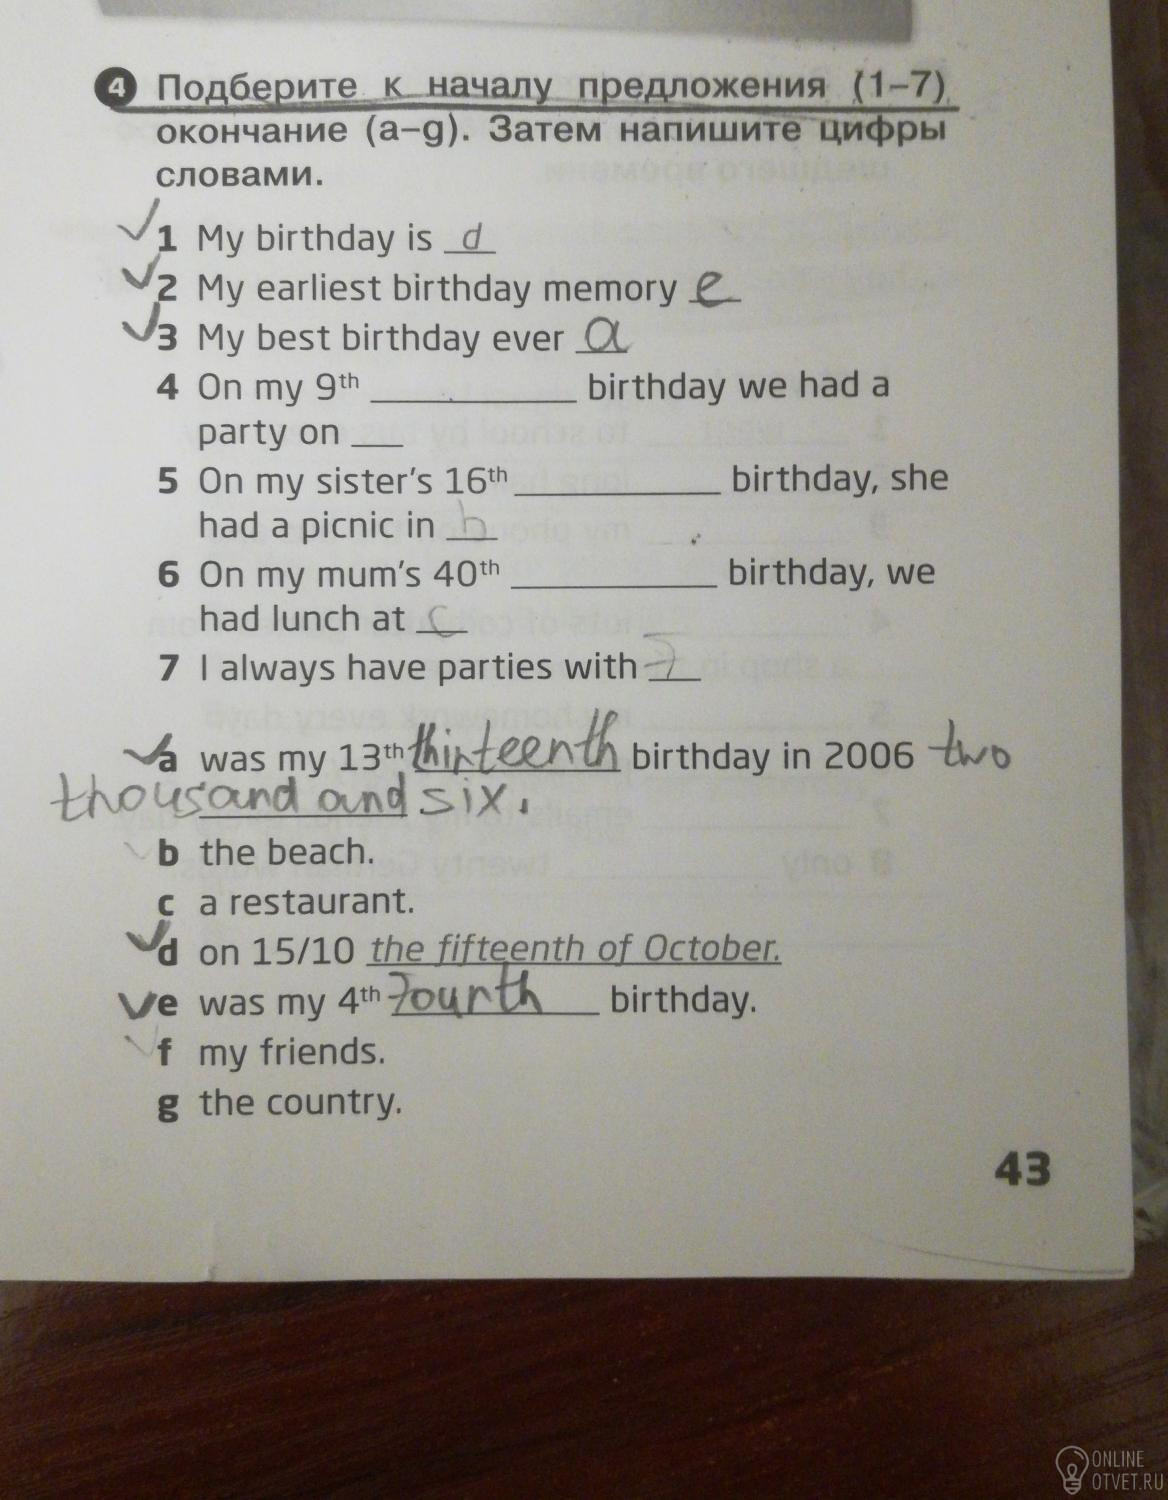 4 Подберите к началу предложения (1–7)
окончание (a–g). Затем напишите цифры
словами.
1 My birthday is d
2 My earliest birthday memory e
3 My best birthday ever a
4 On my 9th ____ birthday we had a
party on ____
5 On my sister's 16th ____ birthday, she
had a picnic in b
6 On my mum's 40th ____ birthday, we
had lunch at c
7 I always have parties with f
a was my 13th thirteenth birthday in 2006 two
thousand and six.
b the beach.
c a restaurant.
d on 15/10 the fifteenth of October.
e was my 4th fourth birthday.
f my friends.
g the country.
43
ONLINE
OTVET.RU